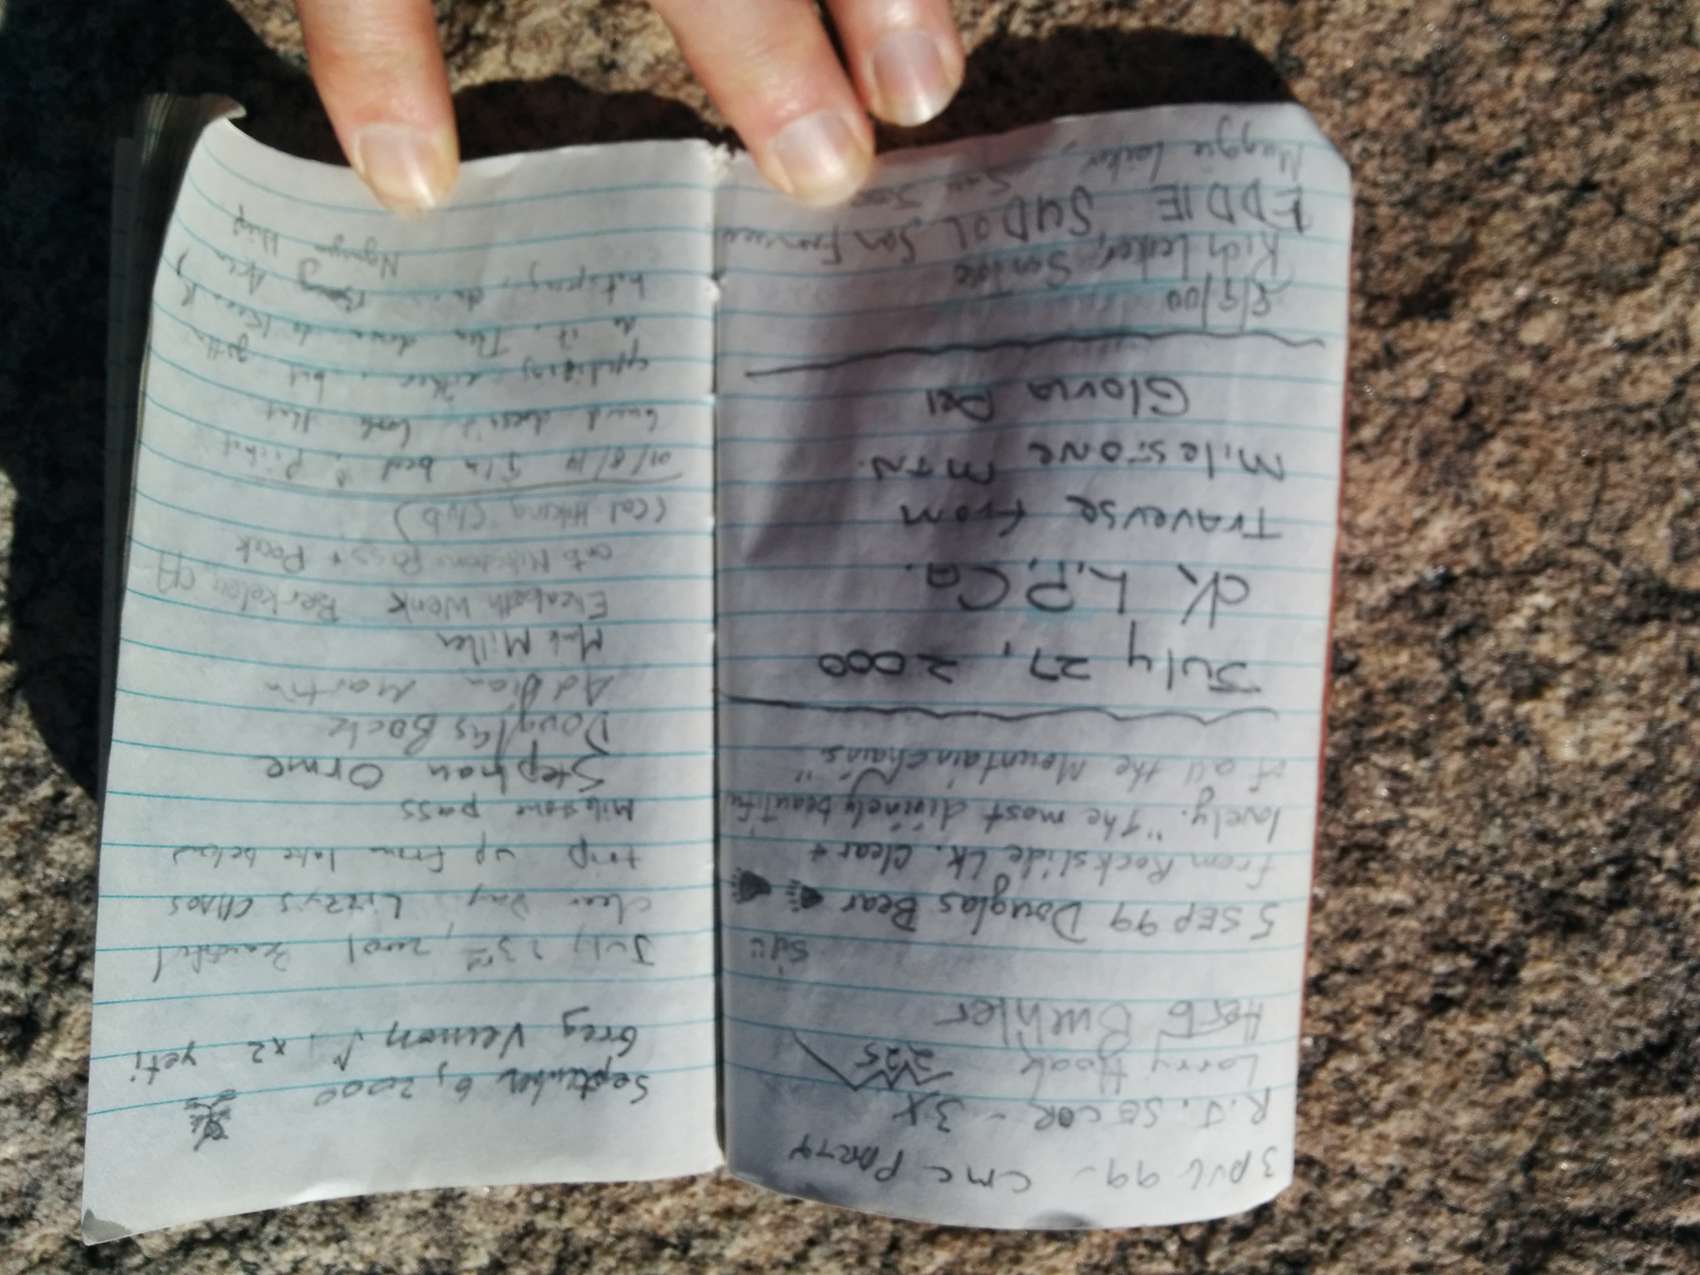 3 JUL 99 - CMC PARTY
R.J. SECOR - 3X
Larry Hoak 225
Herb Buehler
5 SEP 99 Douglas Bear
from Rockslide Lk. Clear +
lovely. "The most divinely beautiful
of all the Mountain chains"
July 27, 2000
Traverse from
Milestone MTN.
Gloria Dei
8/5/00
Rich Leiker, San Jose
EDDIE SUDOL San Francisco
Maggie Leiker, San Jose
September 6, 2000
Greg Vernon x2 yeti
July 23rd, 2001 Beautiful
clear Day Lizzy's CHAOS
trip up from lake below
Milestone pass
Stephan Orme
Douglas Bock
Adrian Martin
Mark Miller
Elizabeth Wenk Berkeley, CA
Milestone Pass + Peak
(Cal Hiking Club)
01/8/14
doesn't look that
either, but
do it. Then down to